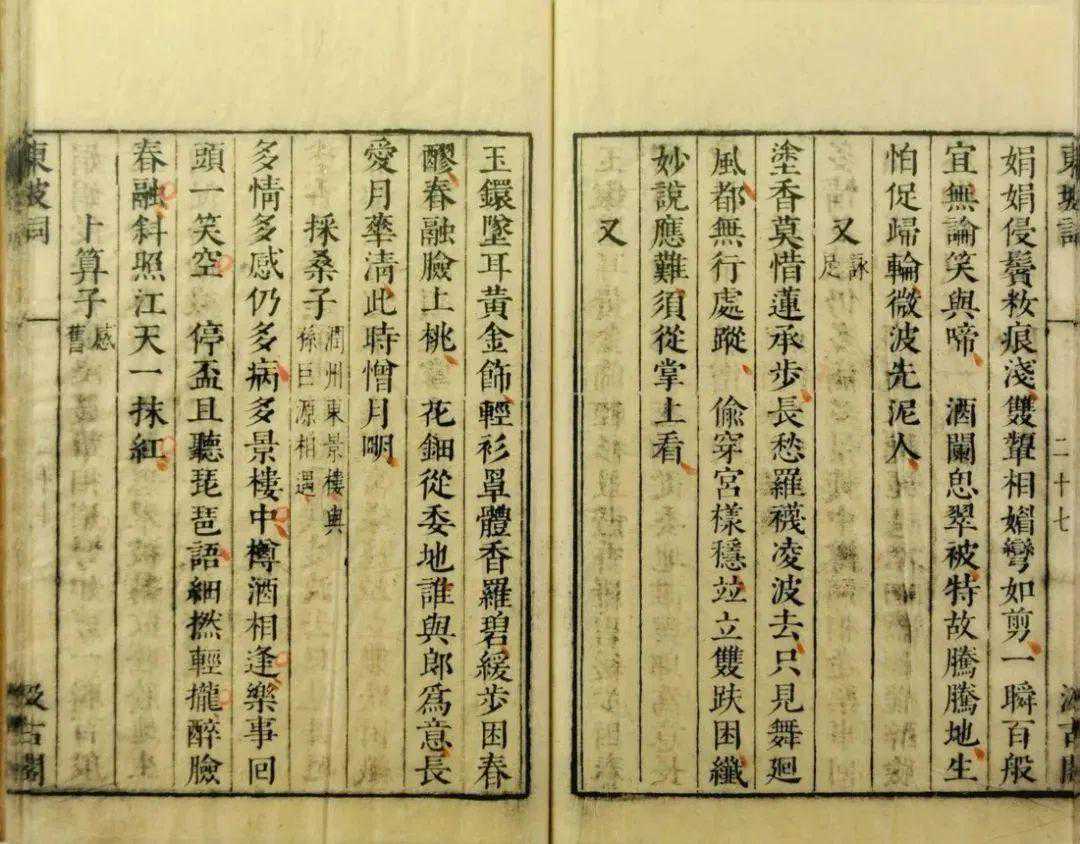 東坡詞 二十七 汲古閣
娟娟侵鬢妝痕淺雙顰相媚彎如剪一瞬百般
宜無論笑與啼 酒闌思翠被特故騰騰地生
怕促歸輪微波先泥人
又 詠足
塗香莫惜蓮承步長愁羅襪凌波去只見舞廻
風都無行處蹤 偷穿宮樣穩竝立雙趺困纖
妙說應難須從掌上看
又
玉鐶墜耳黃金飾輕衫罩體香羅碧緩步困春
醪春融臉上桃 花鈿從委地誰與郎爲意長
愛月華清此時憎月明
採桑子 潤州東景樓與孫巨源相遇
多情多感仍多病多景樓中樽酒相逢樂事回
頭一笑空 停盃且聽琵琶語細撚輕攏醉臉
春融斜照江天一抹紅
卜算子 感舊
東坡詞 汲古閣